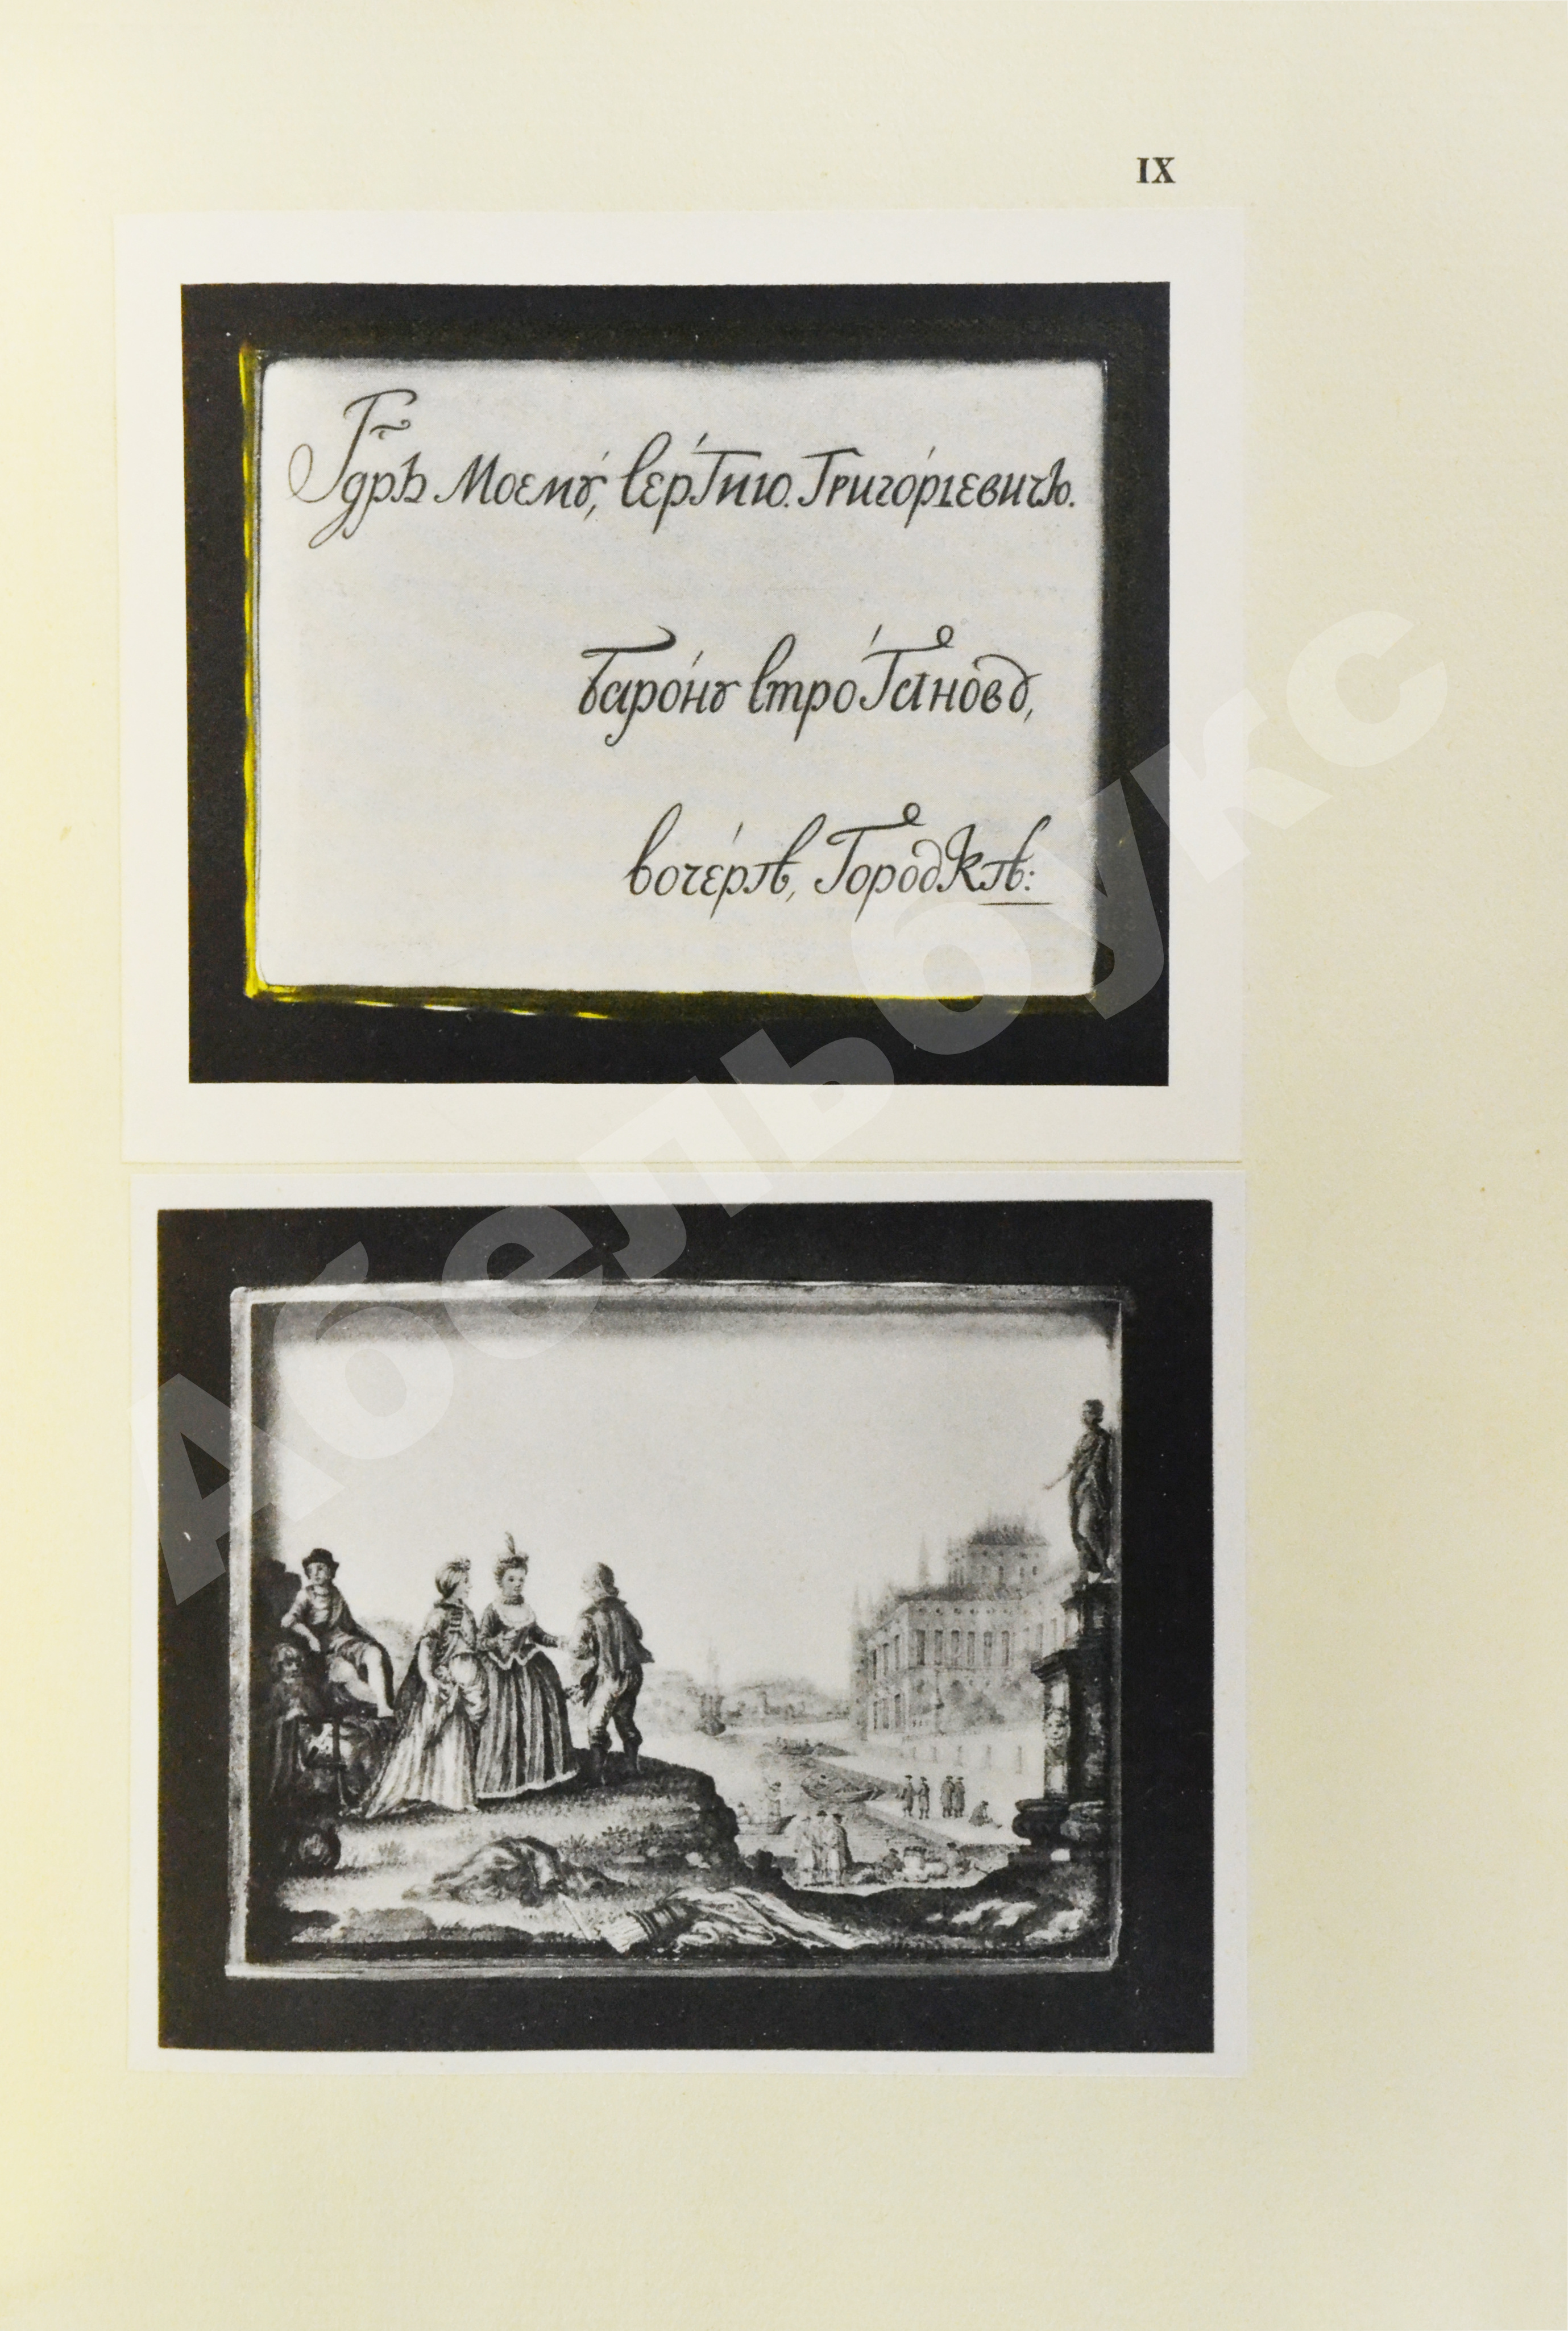 IX
Гдрю Моемꙋ́, Сергию. Григо́рıевичю.
Баро́нꙋ Стро́гановꙋ,
вочерѣ, Городкѣ:
Абельбукс